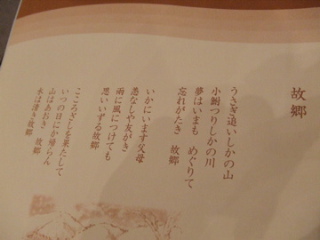 故郷
うさぎ追いしかの山
小鮒つりしかの川
夢はいまも めぐりて
忘れがたき 故郷
いかにいます父母
恙なしや友がき
雨に風につけても
思いいずる故郷
こころざしを果たして
いつの日にか帰らん
山はあおき 故郷
水は清き故郷